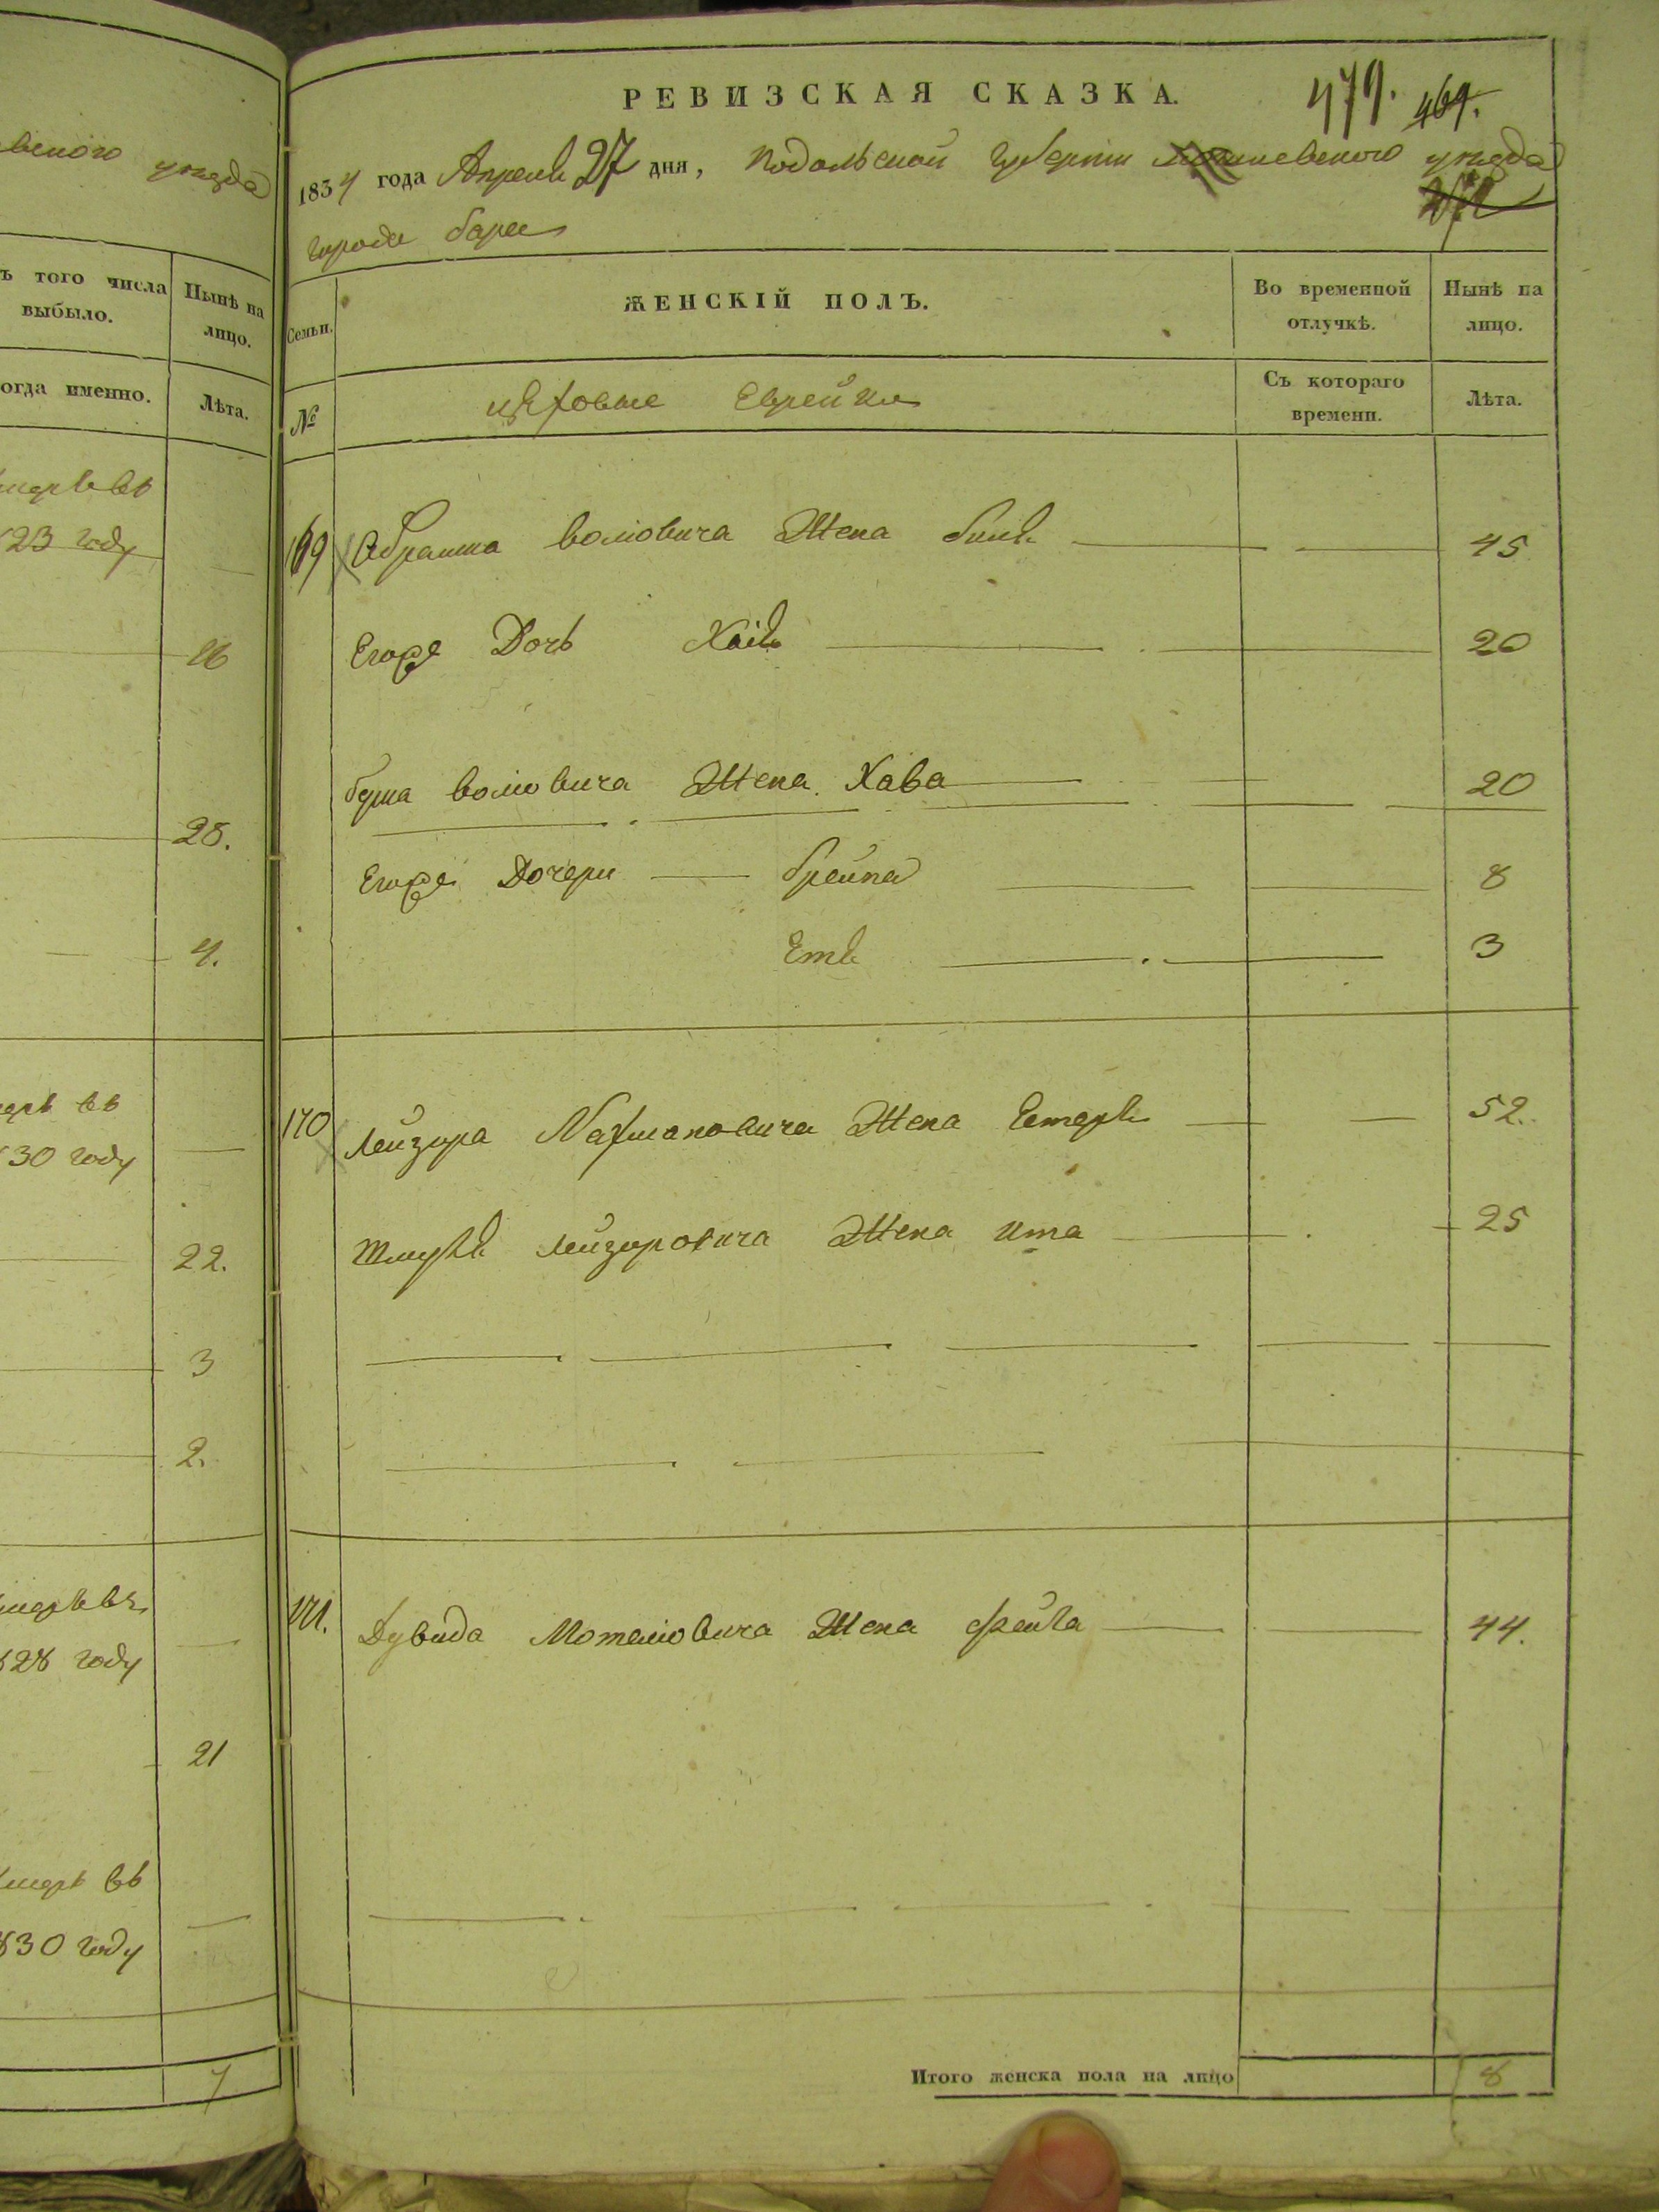 вского уезда
ъ того числа
выбыло.
Нынѣ на
лицо.
огда именно.
Лѣта.
мерѣ въ
23 году
16
28.
4.
мерѣ въ
30 году
22.
3
2.
мерѣ въ
828 году
21
мерѣ въ
830 году
7
РЕВИЗСКАЯ СКАЗКА.
479. 469.
1834 года Апреля 27 дня, Подольской Губернии уезда
города бара
Семьи.
ЖЕНСКІЙ ПОЛЪ.
Во временной
отлучкѣ.
Нынѣ на
лицо.
№
цѣховые Еврейки
Съ котораго
времени.
Лѣта.
169 Абрама волковича Жена 45
Егоже Дочь Хаія 20
берка волковича Жена Хава 20
Егоже Дочери брейна 8
Етя 3
170 Лейзора Нахмановича Жена Естеря 52.
Шмуля Лейзоровича Жена Ита 25
171. Дувида Мотелювича Жена Фейга 44.
Итого женска пола на лицо 8